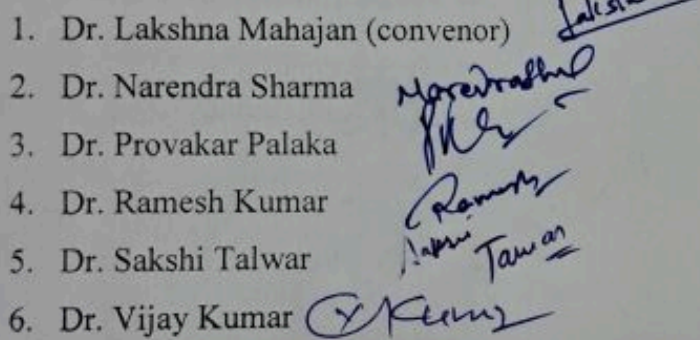 1. Dr. Lakshna Mahajan (convenor)
2. Dr. Narendra Sharma
3. Dr. Provakar Palaka
4. Dr. Ramesh Kumar Ramesh
5. Dr. Sakshi Talwar Sakshi Talwar
6. Dr. Vijay Kumar Kumar